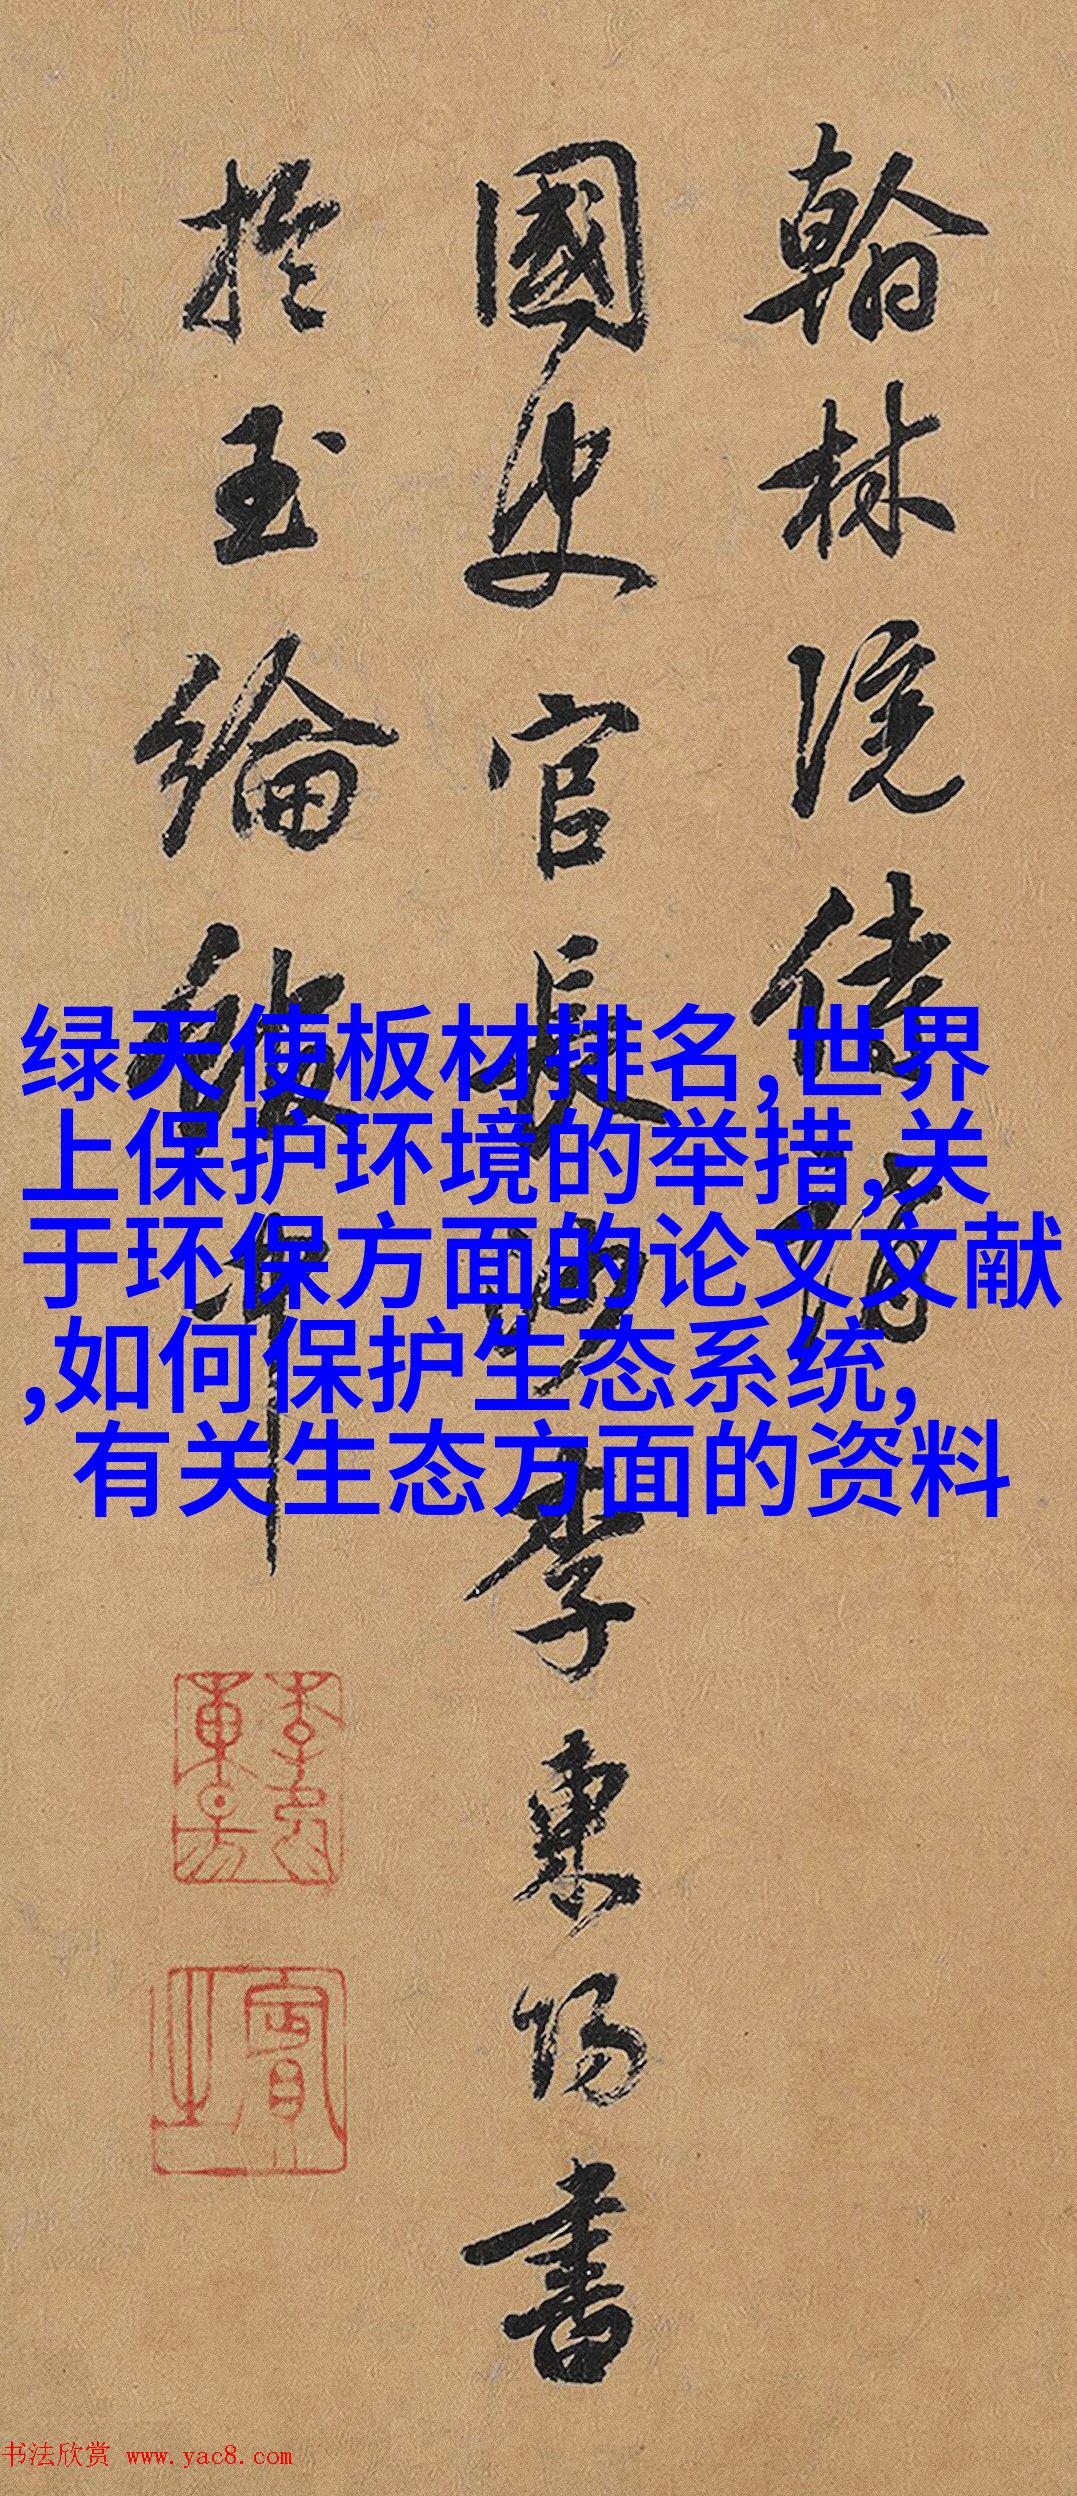 翰林院侍講
國史官長沙李東陽書
於玉綸中
賓之
绿天使板材排名,世界
上保护环境的举措,关
于环保方面的论文文献
,如何保护生态系统,
有关生态方面的资料
书法欣赏 www.yac8.com